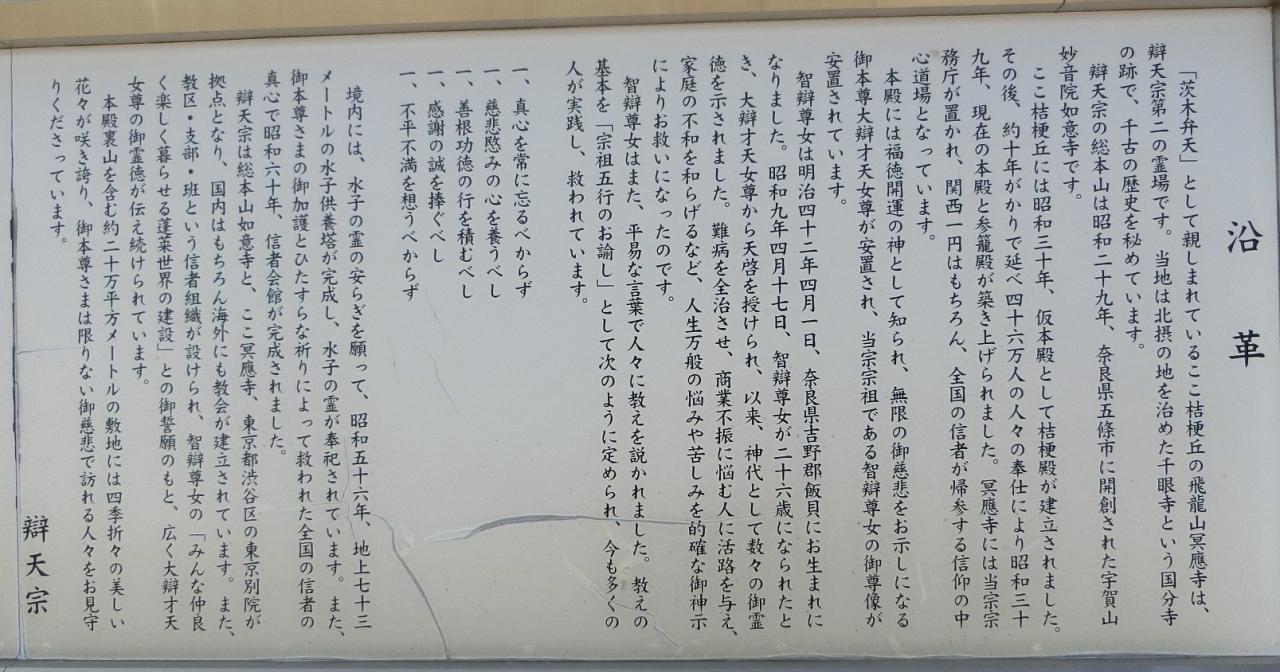 沿革
「茨木弁天」として親しまれているここ桔梗丘の飛龍山冥應寺は、
辯天宗第二の霊場です。当地は北摂の地を治めた千眼寺という国分寺
の跡で、千古の歴史を秘めています。
辯天宗の総本山は昭和二十九年、奈良県五條市に開創された宇賀山
妙音院如意寺です。
ここ桔梗丘には昭和三十年、仮本殿として桔梗殿が建立されました。
その後、約十年がかりで延べ四十六万人の人々の奉仕により昭和三十
九年、現在の本殿と参籠殿が築き上げられました。冥應寺には当宗宗
務庁が置かれ、関西一円はもちろん、全国の信者が帰参する信仰の中
心道場となっています。
本殿には福徳開運の神として知られ、無限の御慈悲をお示しになる
御本尊大辯才天女尊が安置され、当宗宗祖である智辯尊女の御尊像が
安置されています。
智辯尊女は明治四十二年四月一日、奈良県吉野郡飯貝にお生まれに
なりました。昭和九年四月十七日、智辯尊女が二十六歳になられたと
き、大辯才天女尊から天啓を授けられ、以来、神代として数々の御霊
徳を示されました。難病を全治させ、商業不振に悩む人に活路を与え、
家庭の不和を和らげるなど、人生万般の悩みや苦しみを的確な御神示
によりお救いになったのです。
智辯尊女はまた、平易な言葉で人々に教えを説かれました。教えの
基本を「宗祖五行のお諭し」として次のように定められ、今も多くの
人が実践し、救われています。
一、真心を常に忘るべからず
一、慈悲愍みの心を養うべし
一、善根功徳の行を積むべし
一、感謝の誠を捧ぐべし
一、不平不満を想うべからず
境内には、水子の霊の安らぎを願って、昭和五十六年、地上七十三
メートルの水子供養塔が完成し、水子の霊が奉祀されています。また、
御本尊さまの御加護とひたすらな祈りによって救われた全国の信者の
真心で昭和六十年、信者会館が完成されました。
辯天宗は総本山如意寺と、ここ冥應寺、東京都渋谷区の東京別院が
拠点となり、国内はもちろん海外にも教会が建立されています。また、
教区・支部・班という信者組織が設けられ、智辯尊女の「みんな仲良
く楽しく暮らせる蓬莱世界の建設」との御誓願のもと、広く大辯才天
女尊の御霊徳が伝え続けられています。
本殿裏山を含む約二十万平方メートルの敷地には四季折々の美しい
花々が咲き誇り、御本尊さまは限りない御慈悲で訪れる人々をお見守
りくださっています。
辯天宗